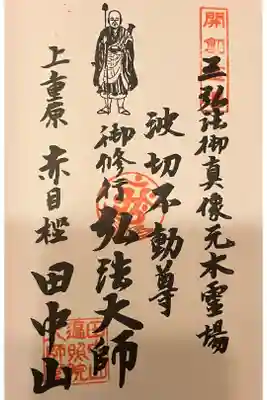 開創
三弘法御真像元木霊場
波切不動尊
御修行弘法大師
上重原 赤目樫 田中山
遍照院